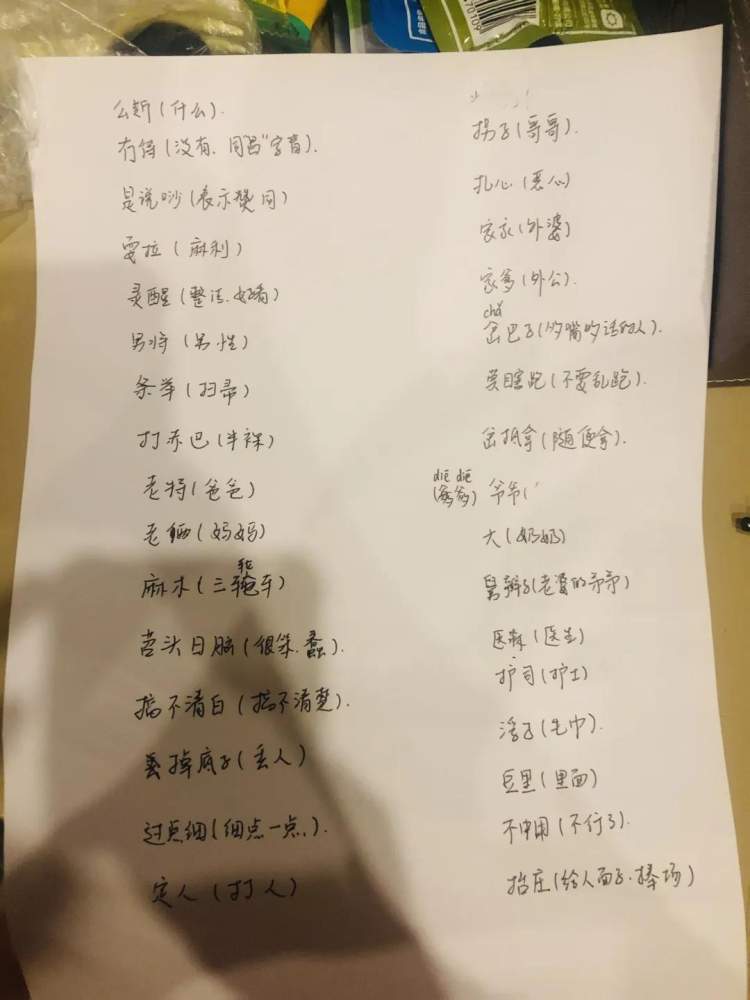 么斯(什么).
冇得(没有.同冒"字音).
是说吵(表示赞同)
耍拉(麻利)
灵醒(整洁.好看)
男将(男性)
条举(扫帚)
打赤巴(半裸)
老特(爸爸)
老(妈妈)
麻木(三轮车)
苕头日脑(很笨.蠢).
搞不清白(搞不清楚).
丢掉底子(丢人)
过点细(细点一点.).
定人(打人)
拐子(哥哥).
扎心(恶心)
家家(外婆)
家爹(外公).
chǎ
岔巴子(多嘴多话的人).
莫瞎跑(不要乱跑).
岔抵拿(随便拿).
diē diē
(爹爹) 爷爷(
大(奶奶)
舅辫子(老婆的弟弟)
医(医生)
护司(护士)
浮子(毛巾).
豆里(里面)
不中用(不行了).
抬庄(给人面子.捧场)